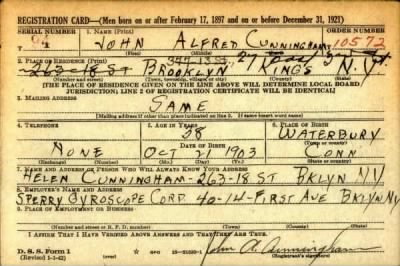 REGISTRATION CARD—(Men born on or after February 17, 1897 and on or before December 31, 1921)
SERIAL NUMBER 1. NAME (Print) ORDER NUMBER
JOHN ALFRED CUNNINGHAM 10572
(First) (Middle) (Last)
2. PLACE OF RESIDENCE (Print)
263-18 ST BROOKLYN KINGS N.Y.
(Number and street) (Town, township, village, or city) (County) (State)
[THE PLACE OF RESIDENCE GIVEN ON THE LINE ABOVE WILL DETERMINE LOCAL BOARD
JURISDICTION; LINE 2 OF REGISTRATION CERTIFICATE WILL BE IDENTICAL]
3. MAILING ADDRESS
SAME
[Mailing address if other than place indicated on line 2. If same insert word same]
4. TELEPHONE 5. AGE IN YEARS 6. PLACE OF BIRTH
38 WATERBURY
DATE OF BIRTH (Town or county)
NONE OCT 21 1903 CONN
(Exchange) (Number) (Mo.) (Day) (Yr.) (State or country)
7. NAME AND ADDRESS OF PERSON WHO WILL ALWAYS KNOW YOUR ADDRESS
HELEN CUNNINGHAM - 263-18 ST BKLYN NY
8. EMPLOYER'S NAME AND ADDRESS
SPERRY GYROSCOPE CORP 40-14-FIRST AVE BKLYN NY
9. PLACE OF EMPLOYMENT OR BUSINESS
(Number and street or R. F. D. number) (Town) (County) (State)
I AFFIRM THAT I HAVE VERIFIED ABOVE ANSWERS AND THAT THEY ARE TRUE.
D. S. S. Form 1
(Revised 1-1-42) GPO 16-21630-1
John A. Cunningham
(Registrant's signature)